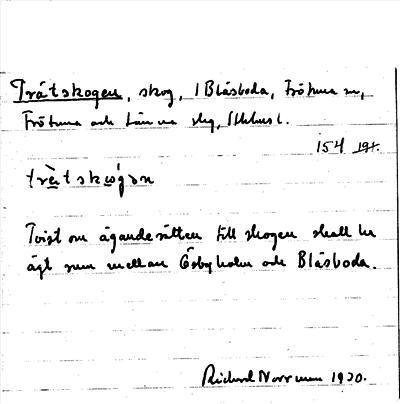 Trätskogen, skog, 1 Blåsboda, Frötuna sn,
Frötuna och Länna skg, Sthlms l.
154
trätskωgən
Tvist om äganderätten till skogen skall ha
ägt rum mellan Österholm och Blåsboda.
Richard Norrman 1930.